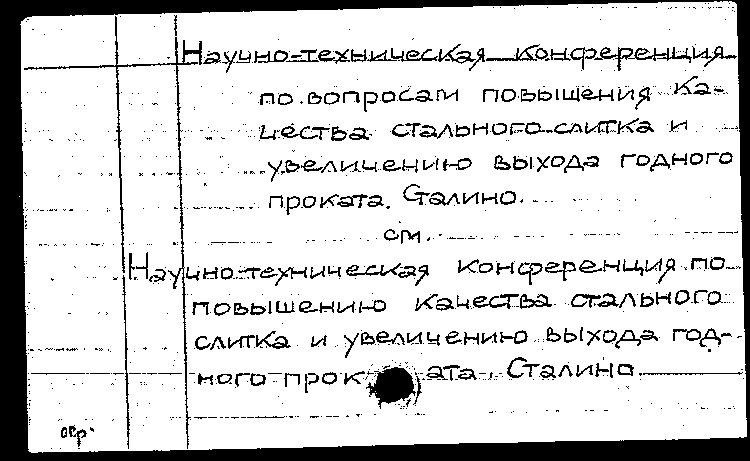 Научно-техническая конференция
по вопросам повышения ка-
чества стального слитка и
увеличению выхода годного
проката. Сталино.
см.
Научно-техническая конференция по
повышению качества стального
слитка и увеличению выхода год-
ного прок ата. Сталино